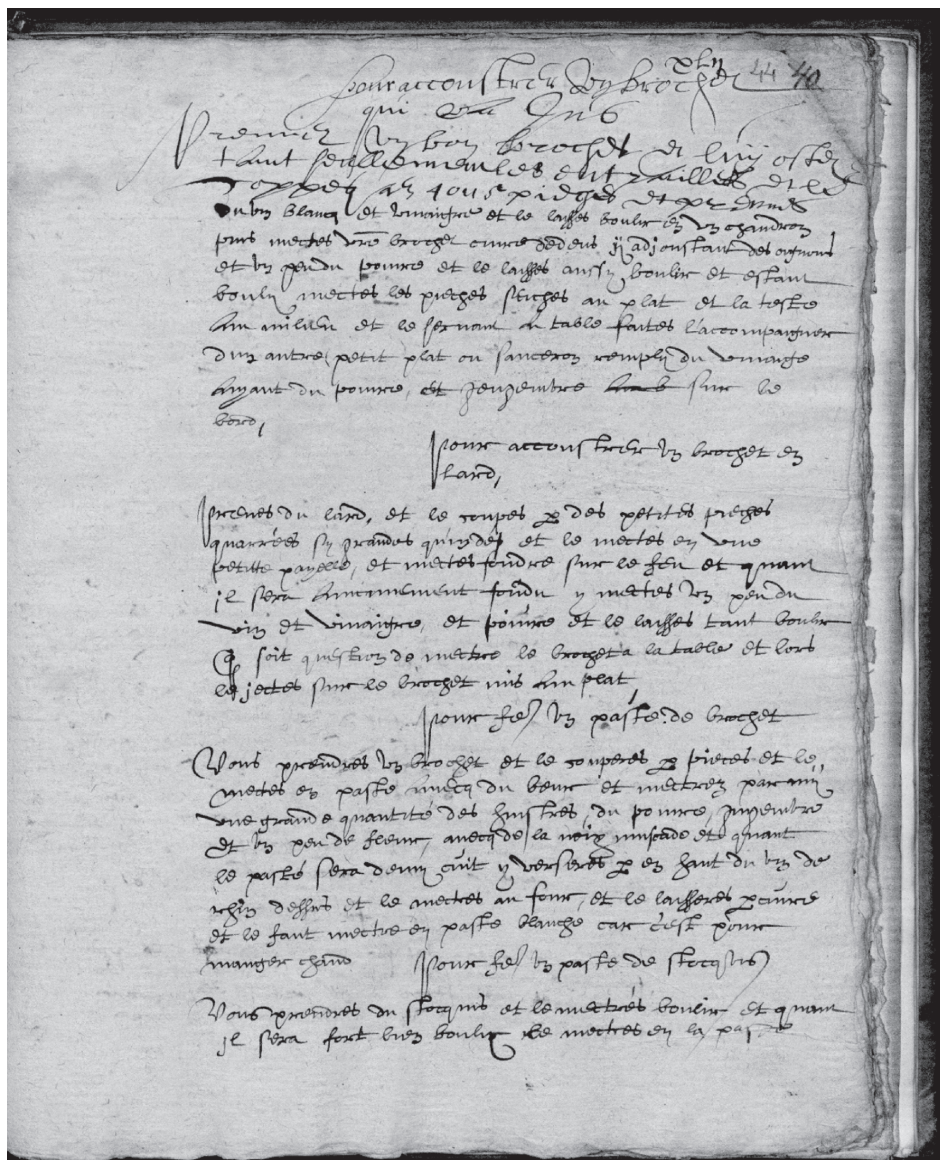 xl 44 40
pour accoustrer ung brochet
qui
Prennez un bon brochet et luy ostez
tant seullement les entrailles et le
coppez en 4 ou 5 pieges et prennes
du vin blancq et vinaigre et le lasses boulir en un chaudron
puis mectes vre brochet cuire dedens y adjoustant des oignons
et un peu du poivre et le laisses ainsy boulir et estant
bouly mectes les pieches seiches au plat et la teste
au milieu et le servant a table faites l'accompaigner
d'un autre petit plat ou sauceron remply du vinaigre
ayant du poivre, et zenzembre sur le
bord,
pour accoustrer un brochet en
lard,
Prenes du lard, et le coupes p des petites pieches
quarrées sy grandes qu'un dés et le mectes en une
petitte payelle, et mectes fondre sur le feu et quant
il sera aucunement fondu y mectes un peu du
vin et vinaigre, et poivre et le laisses tant boulir
q soit question de mectre le brochet a la table et lors
le jectes sur le brochet mis au plat,
pour fe un pasté de brochet
Vous prendres un brochet et le couperes p pieces et le
mectes en paste avecq du beur et mectrez parmi
une grande quantité des huistres, du poivre, zinzembre
et un peu de fleur, avecq de la noix muscade et quant
le pasté sera demy cuit y verseres p en haut du vin de
rhin dessus et le mectres au four, et le laisseres pcuire
et le faut mectre en paste blanche car c'est pour
manger chaud pour fe un pasté de stocquis
Vous prendres du stocquis et le mectrés boulir et quant
il sera fort bien boulir le mectres en la paste